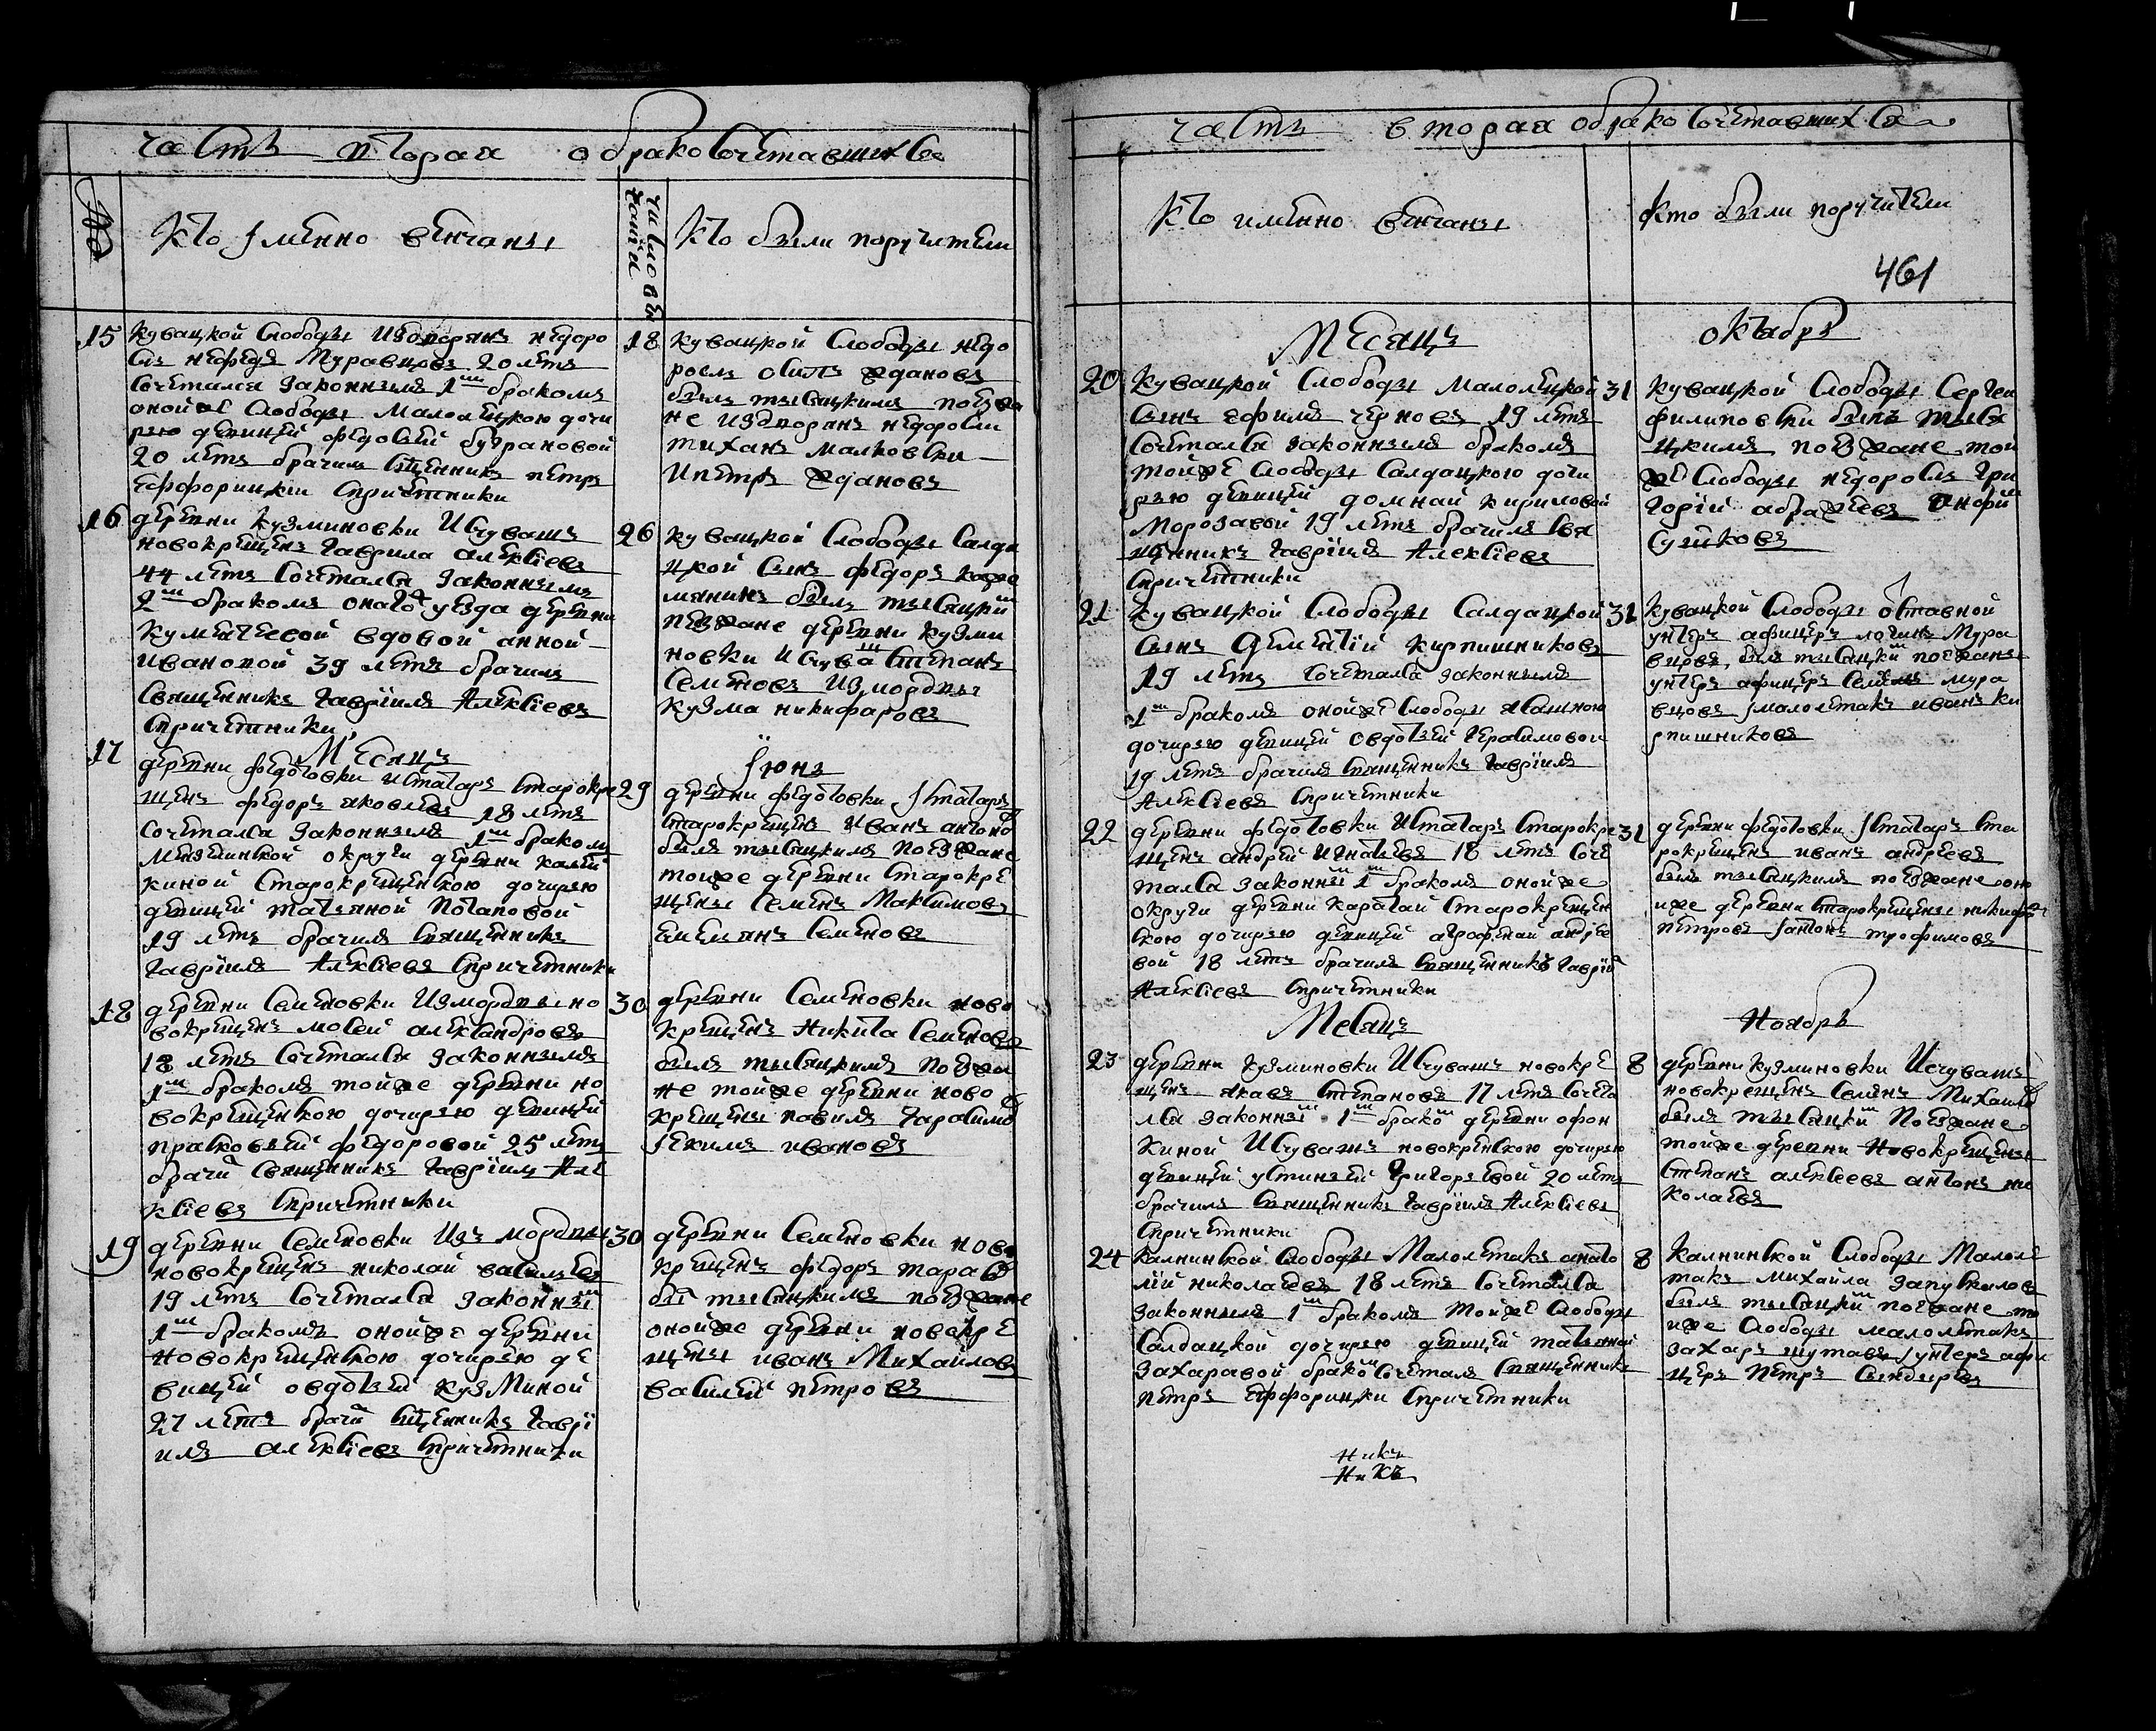 часть вторая о бракосочетавшихся
№
кто именно венчаны
число венчания
кто были поручители
15
кувацкой слободы издворянъ недоро
сль нефедъ Муравцовъ 20 летъ
сочетался законнымъ 1мъ бракомъ
оной же слободы малолецкою дочи
рью девицей федосьей
20 летъ брачилъ сщенникъ петръ
спричетники
18
кувацкой слободы недо
росль осипъ ждановъ
былъ тысяцкимъ поезжа
не издворянъ недоросли
малковски
ипетръ ждановъ
16
деревни кузминовки исчувашъ
новокрещенъ гаврила алексіевъ
44 летъ сочетался законнымъ
2мъ бракомъ онаго уезда деревни
вдовой анной
ивановой 39 летъ брачилъ
священникъ гавріилъ Алексіевъ
спричетники
26
кувацкой слободы салда
цкой сынъ федоръ
былъ тысяцкимъ
поезжане деревни кузми
новки исчувашъ степанъ
семеновъ измордвы
кузма никифоровъ
Месяцъ
июнь
17
деревни федотовки истатаръ старокре
щенъ федоръ яковлевъ 18 летъ
сочетался законнымъ 1мъ бракомъ
мензелинской округи деревни
киной старокрещенскою дочирью
девицей татьяной потаповой
19 летъ брачилъ священникъ
гавріилъ Алексіевъ спричетники
29
деревни федотовки истатаръ
старокрещенъ иванъ антоно
былъ тысяцкимъ поезжане
тойже деревни старокре
щены семенъ Максимовъ
емельянъ семеновъ
18
деревни семеновки измордвы но
вокрещенъ мосеи александровъ
18 летъ сочетался законнымъ
1мъ бракомъ тойже деревни но
вокрещенскою дочирью девицей
прасковьей федоровой 25 летъ
брачи священникъ гавріилъ Але
ксіевъ спричетники
30
деревни семеновки ново
крещенъ никита семеновъ
былъ тысяцкимъ поезжа
не тойже деревни ново
крещены павилъ гарасимо
иекимъ ивановъ
19
деревни семеновки изъ мордвы
новокрещенъ николаи васильев
19 летъ сочетался законны
1мъ бракомъ онойже деревни
новокрещенскою дочирью де
вицей овдотьей кузминой
27 летъ брачи сщенникъ гаврі
илъ алексіевъ спричетники
30
деревни семеновки ново
крещенъ федоръ тарасо
бы тысяцкимъ поезжане
онойже деревни новокре
щены иванъ Михайловъ
василей петровъ
часть вторая о бракосочетавшихся
кто именно венчаны
кто были поручители
461
Месяцъ
октябрь
20
кувацкой слободы малолецкой
сынъ ефимъ черновъ 19 летъ
сочетался законнымъ бракомъ
тойже слободы салдацкою дочи
рью девицей домнай кириловой
морозавой 19 летъ брачилъ свя
щенникъ гавріилъ Алексіевъ
спричетники
31
кувацкой слободы сергеи
филиповски былъ тыся
цкимъ поезжане той
же слободы недоросль гри
горіи
21
кувацкой слободы салдацкой
сынъ дементіи кирпишниковъ
19 летъ сочетался законнымъ
1мъ бракомъ онойже слободы
дочирью девицей овдотьей герасимовой
19 летъ брачилъ священникъ гавріилъ
Алексіевъ спричетники
31
кувацкой слободы отставной
унтеръ афицеръ логинъ Мура
былъ тысяцки поезжане
унтеръ афицеръ семенъ мура
вцовъ ималолетакъ иванъ ки
рпишниковъ
22
деревни федотовки истатаръ старокре
щенъ андрей игнатьевъ 18 летъ соче
тался законны 1мъ бракомъ онойже
округи деревни каратаи старокрещен
скою дочирью девицей аграфеной андре
вой 18 летъ брачилъ священникъ гаврій
Алексіевъ спричетники
31
деревни федотовки истатаръ ста
рокрещенъ иванъ андреевъ
былъ тысяцкимъ поезжане оно
йже деревни старокрещены никифо
петровъ иантонъ трофимовъ
Месяцъ
Ноябрь
23
деревни кузминовки исчувашъ новокре
щенъ яковъ степановъ 17 летъ сочета
лся законны 1мъ брако деревни офон
киной исчувашъ новокренскою дочирью
девицей устиньей григорьевой 20 летъ
брачилъ священникъ гавріилъ Алексіевъ
спричетники
8
деревни кузминовки исчувашъ
новокрещенъ семенъ Михаило
былъ тысяцки поезжане
тойже деревни новокрещены
степанъ алексеевъ антонъ ни
колаевъ
24
калнинской слободы Малолетакъ анато
лій николаевъ 18 летъ сочетался
законнымъ 1мъ бракомъ тойже слободы
салдацкой дочирью девицей татьяной
захаравой брако сочеталъ священникъ
петръ спричетники
8
калнинской слободы малоле
такъ михайла
былъ тысяцки поезжане то
йже слободы малолетакъ
захаръ шутовъ иунтеръ афи
церъ петръ
никъ
никъ